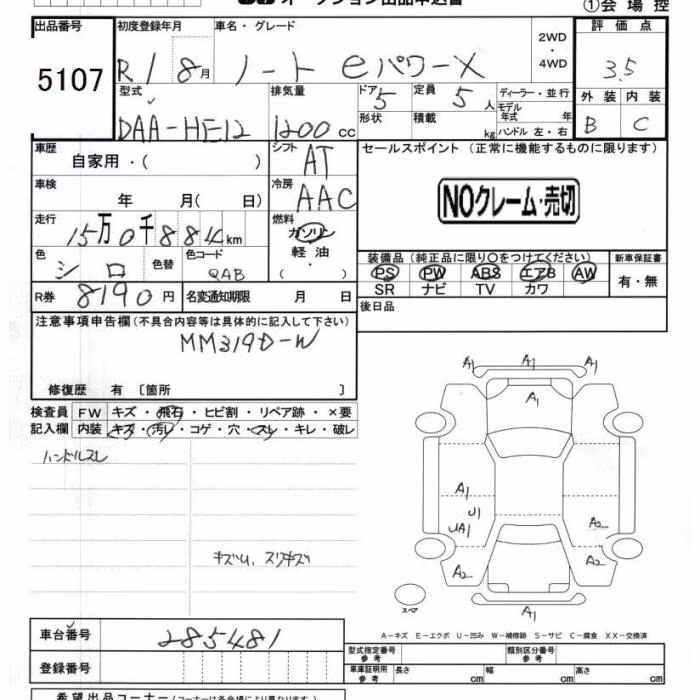 オークション出品申込書
①会場控
出品番号 初度登録年月 車名・グレード 評価点
5107 R1 8月 ノート eパワーX 2WD・4WD 3.5
型式 排気量 ドア 定員 ディーラー・並行 外装 内装
DAA-HE12 1200cc 5 5人 モデル年式 年 B C
形状 積載 kg ハンドル 左・右
車歴 シフト セールスポイント (正常に機能するものに限ります)
自家用・( ) AT
車検 冷房 NOクレーム・売切
年 月( 日) AAC
走行 燃料
15万0千884km ガソリン
色 色替 色コード 軽油 装備品 (純正品に限り○をつけてください) 新車保証書
シロ QAB ・( ) PS PW ABS エアB AW 有・無
SR ナビ TV カワ
R券 8190円 名変通知期限 月 日 後日品
注意事項申告欄 (不具合内容等は具体的に記入して下さい)
MM319D-W
修復歴 有 〔箇所 〕
検査員 FW キズ・飛石・ヒビ割・リペア跡・×要
記入欄 内装 キズ・汚レ・コゲ・穴・スレ・キレ・破レ
ハンドルスレ
キズU、スリキズ
A1 A1 A1
A1
A1
U1
UA1 A2
A2 A2
A1
スペア
A-キズ E-エクボ U-凹み W-補修跡 S-サビ C-腐食 XX-交換済
車台番号 285481
型式指定番号 参考 類別区分番号 参考
登録番号 車庫証明用 参考 長さ cm 幅 cm 高さ cm
希望出品コーナー (コーナーは各会場により異なります)